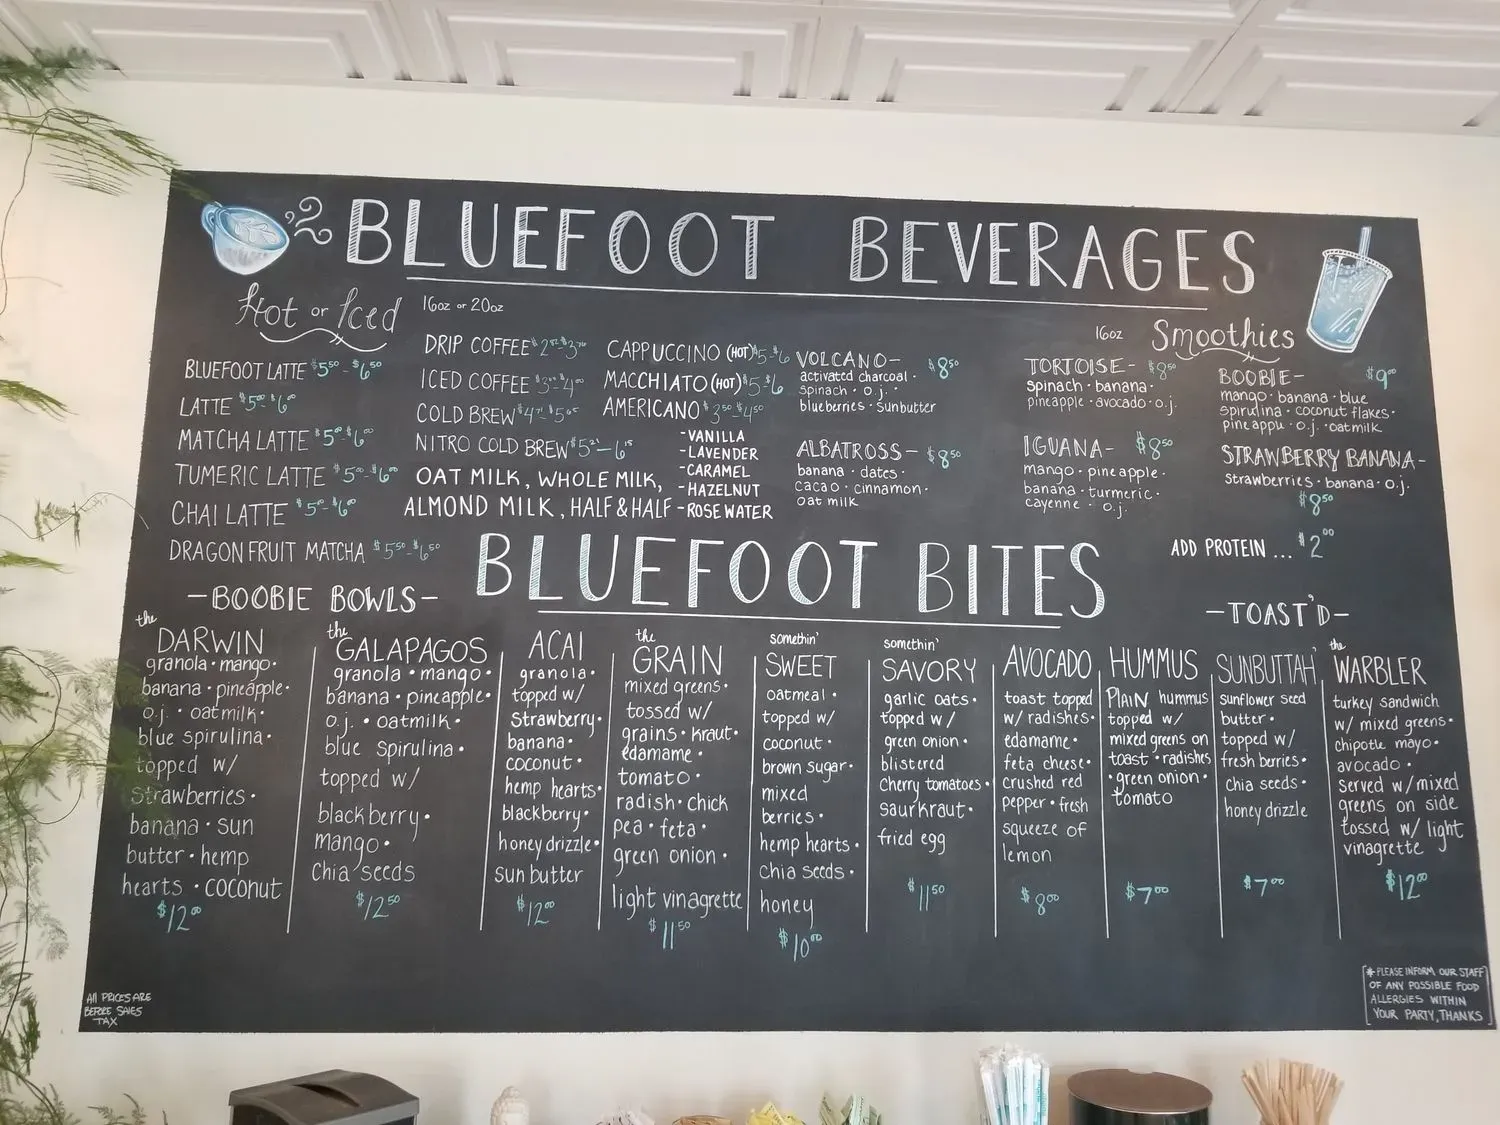 BLUEFOOT BEVERAGES
Hot or Iced
16oz or 20oz
BLUEFOOT LATTE $5⁵⁰-$6⁵⁰
LATTE $5⁰⁰-$6⁰⁰
MATCHA LATTE $5⁰⁰-$6⁰⁰
TUMERIC LATTE $5⁰⁰-$6⁰⁰
CHAI LATTE $5⁰⁰-$6⁰⁰
DRAGONFRUIT MATCHA $5⁵⁰-$6⁵⁰
DRIP COFFEE
ICED COFFEE
COLD BREW
NITRO COLD BREW
OAT MILK, WHOLE MILK,
ALMOND MILK, HALF & HALF
CAPPUCCINO (HOT) $5-$6
MACCHIATO (HOT) $5-$6
AMERICANO $3⁵⁰-$4⁵⁰
-VANILLA
-LAVENDER
-CARAMEL
-HAZELNUT
-ROSE WATER
16oz Smoothies
VOLCANO- $8⁵⁰
activated charcoal ·
spinach · o.j. ·
blueberries · sunbutter
ALBATROSS- $8⁵⁰
banana · dates ·
cacao · cinnamon ·
oat milk
TORTOISE- $8⁵⁰
spinach · banana ·
pineapple · avocado · o.j.
IGUANA- $8⁵⁰
mango · pineapple ·
banana · turmeric ·
cayenne · o.j.
BOOBIE- $9⁰⁰
mango · banana · blue
spirulina · coconut flakes ·
pineappu · o.j. · oatmilk
STRAWBERRY BANANA-
strawberries · banana · o.j.
$8⁵⁰
ADD PROTEIN ... $2⁰⁰
BLUEFOOT BITES
-BOOBIE BOWLS-
the
DARWIN
granola · mango ·
banana · pineapple ·
o.j. · oatmilk ·
blue spirulina ·
topped w/
strawberries ·
banana · sun
butter · hemp
hearts · coconut
$12⁰⁰
the
GALAPAGOS
granola · mango ·
banana · pineapple ·
o.j. · oatmilk ·
blue spirulina ·
topped w/
blackberry ·
mango ·
chia seeds
$12⁵⁰
ACAI
granola ·
topped w/
strawberry ·
banana ·
coconut ·
hemp hearts ·
blackberry ·
honey drizzle ·
sun butter
$12⁰⁰
the
GRAIN
mixed greens ·
tossed w/
grains · kraut ·
edamame ·
tomato ·
radish · chick
pea · feta ·
green onion ·
light vinagrette
$11⁵⁰
somethin'
SWEET
oatmeal ·
topped w/
coconut ·
brown sugar ·
mixed
berries ·
hemp hearts ·
chia seeds ·
honey
$10⁰⁰
somethin'
SAVORY
garlic oats ·
topped w/
green onion ·
blistered
cherry tomatoes ·
saurkraut ·
fried egg
$11⁵⁰
-TOAST'D-
AVOCADO
toast topped
w/ radishes ·
edamame ·
feta cheese ·
crushed red
pepper · fresh
squeeze of
lemon
$8⁰⁰
HUMMUS
PLAIN hummus
topped w/
mixed greens on
toast · radishes
· green onion ·
tomato
$7⁰⁰
SUNBUTTAH'
sunflower seed
butter ·
topped w/
fresh berries ·
chia seeds ·
honey drizzle
$7⁰⁰
the
WARBLER
turkey sandwich
w/ mixed greens ·
chipotle mayo ·
avocado ·
served w/ mixed
greens on side
tossed w/ light
vinagrette
$12⁰⁰
All PRICES ARE
BEFORE SALES
TAX
*PLEASE INFORM OUR STAFF
OF ANY POSSIBLE FOOD
ALLERGIES WITHIN
YOUR PARTY, THANKS